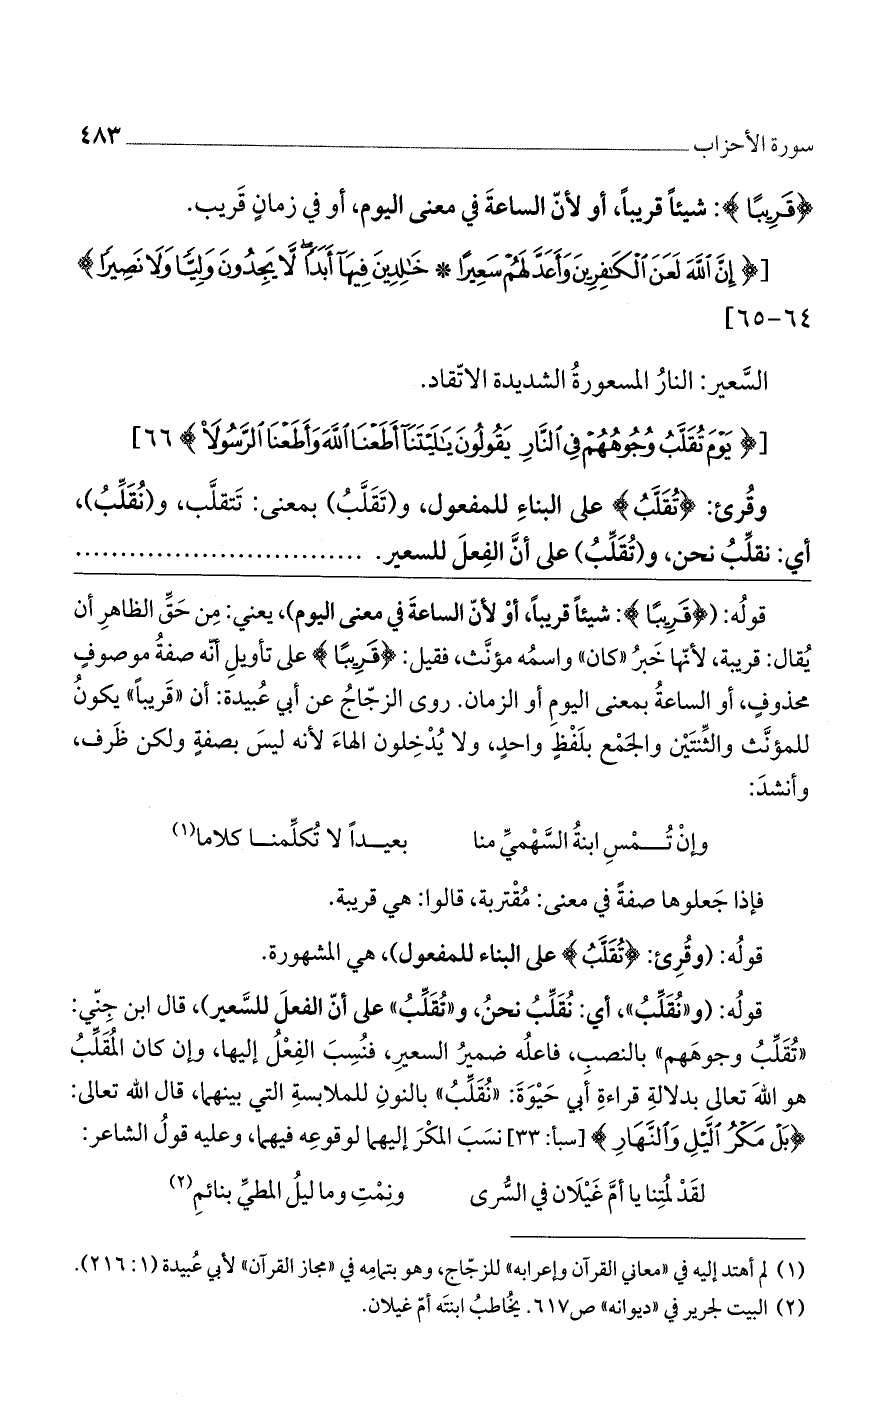 سورة الأحزاب ٤٨٣
﴿قَرِيبًا﴾: شيئاً قريباً، أو لأنّ الساعةَ في معنى اليوم، أو في زمانٍ قَريب.
[﴿إِنَّ ٱللَّهَ لَعَنَ ٱلْكَـٰفِرِينَ وَأَعَدَّ لَهُمْ سَعِيرًا * خَـٰلِدِينَ فِيهَآ أَبَدًا ۖ لَّا يَجِدُونَ وَلِيًّا وَلَا نَصِيرًا﴾
٦٤-٦٥]
السَّعير: النارُ المسعورةُ الشديدة الاتّقاد.
[﴿يَوْمَ تُقَلَّبُ وُجُوهُهُمْ فِى ٱلنَّارِ يَقُولُونَ يَـٰلَيْتَنَآ أَطَعْنَا ٱللَّهَ وَأَطَعْنَا ٱلرَّسُولَا۠﴾ ٦٦]
وقُرئ: ﴿تُقَلَّبُ﴾ على البناءِ للمفعول، و(تَقَلَّبُ) بمعنى: تَتقلَّب، و(نُقَلِّبُ)،
أي: نقلِّبُ نحن، و(تُقَلِّبُ) على أنَّ الفِعلَ للسعير. ................................
قولُه: (﴿قَرِيبًا﴾: شيئاً قريباً، أوْ لأنّ الساعةَ في معنى اليوم)، يعني: مِن حَقِّ الظاهرِ أن
يُقال: قريبة، لأنّها خَبرُ «كان» واسمُه مؤنَّث، فقيل: ﴿قَرِيبًا﴾ على تأويلِ أنّه صفةُ موصوفٍ
محذوفٍ، أو الساعةُ بمعنى اليومِ أو الزمان. روى الزجّاجُ عن أبي عُبيدة: أن «قَريباً» يكونُ
للمؤنَّث والثِّنتَيْن والجَمْع بلَفْظٍ واحدٍ، ولا يُدْخِلون الهاءَ لأنه ليسَ بصفةٍ ولكن ظَرف،
وأنشدَ:
وإنْ تُـــمْسِ ابنةُ السَّهْميِّ منا بعيـــداً لا تُكلِّمنــا كلاما(١)
فإذا جَعلوها صفةً في معنى: مُقْتربة، قالوا: هي قريبة.
قولُه: (وقُرِئ: ﴿تُقَلَّبُ﴾ على البناء للمفعول)، هي المشهورة.
قولُه: (و«نُقَلِّبُ»، أي: نُقَلِّبُ نحنُ، و«تُقَلِّبُ» على أنّ الفعلَ للسَّعير)، قال ابن جِنّي:
«تُقَلِّبُ وجوهَهم» بالنصبِ، فاعلُه ضميرُ السعيرِ، فنُسِبَ الفِعْلُ إليها، وإن كان المُقَلِّبُ
هو اللهَ تعالى بدلالةِ قراءةِ أبي حَيْوَةَ: «نُقَلِّبُ» بالنونِ للملابسةِ التي بينهما، قال الله تعالى:
﴿بَلْ مَكْرُ ٱلَّيْلِ وَٱلنَّهَارِ﴾ [سبأ: ٣٣] نسَبَ المكْرَ إليهما لوقوعِه فيهما، وعليه قولُ الشاعر:
لقَدْ لُمتِنا يا أمَّ غَيْلَان في السُّرى ونِمْتِ وما ليلُ المطيِّ بنائمِ(٢)
(١) لم أهتد إليه في «معاني القرآن وإعرابه» للزجّاج، وهو بتمامِه في «مجاز القرآن» لأبي عُبيدة (١: ٢١٦).
(٢) البيت لجرير في «ديوانه» ص٦١٧. يُخاطبُ ابنتَه أمّ غيلان.